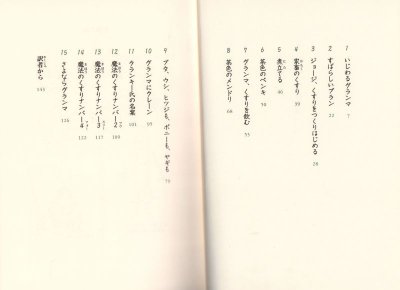 1 いじわるグランマ 7
2 すばらしいプラン 22
3 ジョージ、くすりをつくりはじめる 28
4 家畜のくすり 39
5 煮立てる 46
6 茶色のペンキ 50
7 グランマ、くすりを飲む 55
8 茶色のメンドリ 68
9 ブタ、ウシ、ヒツジも、ポニーも、ヤギも 79
10 グランマにクレーン 95
11 クランキー氏の名案 101
12 魔法のくすりナンバー2 109
13 魔法のくすりナンバー3 117
14 魔法のくすりナンバー4 122
15 さよならグランマ 126
訳者から